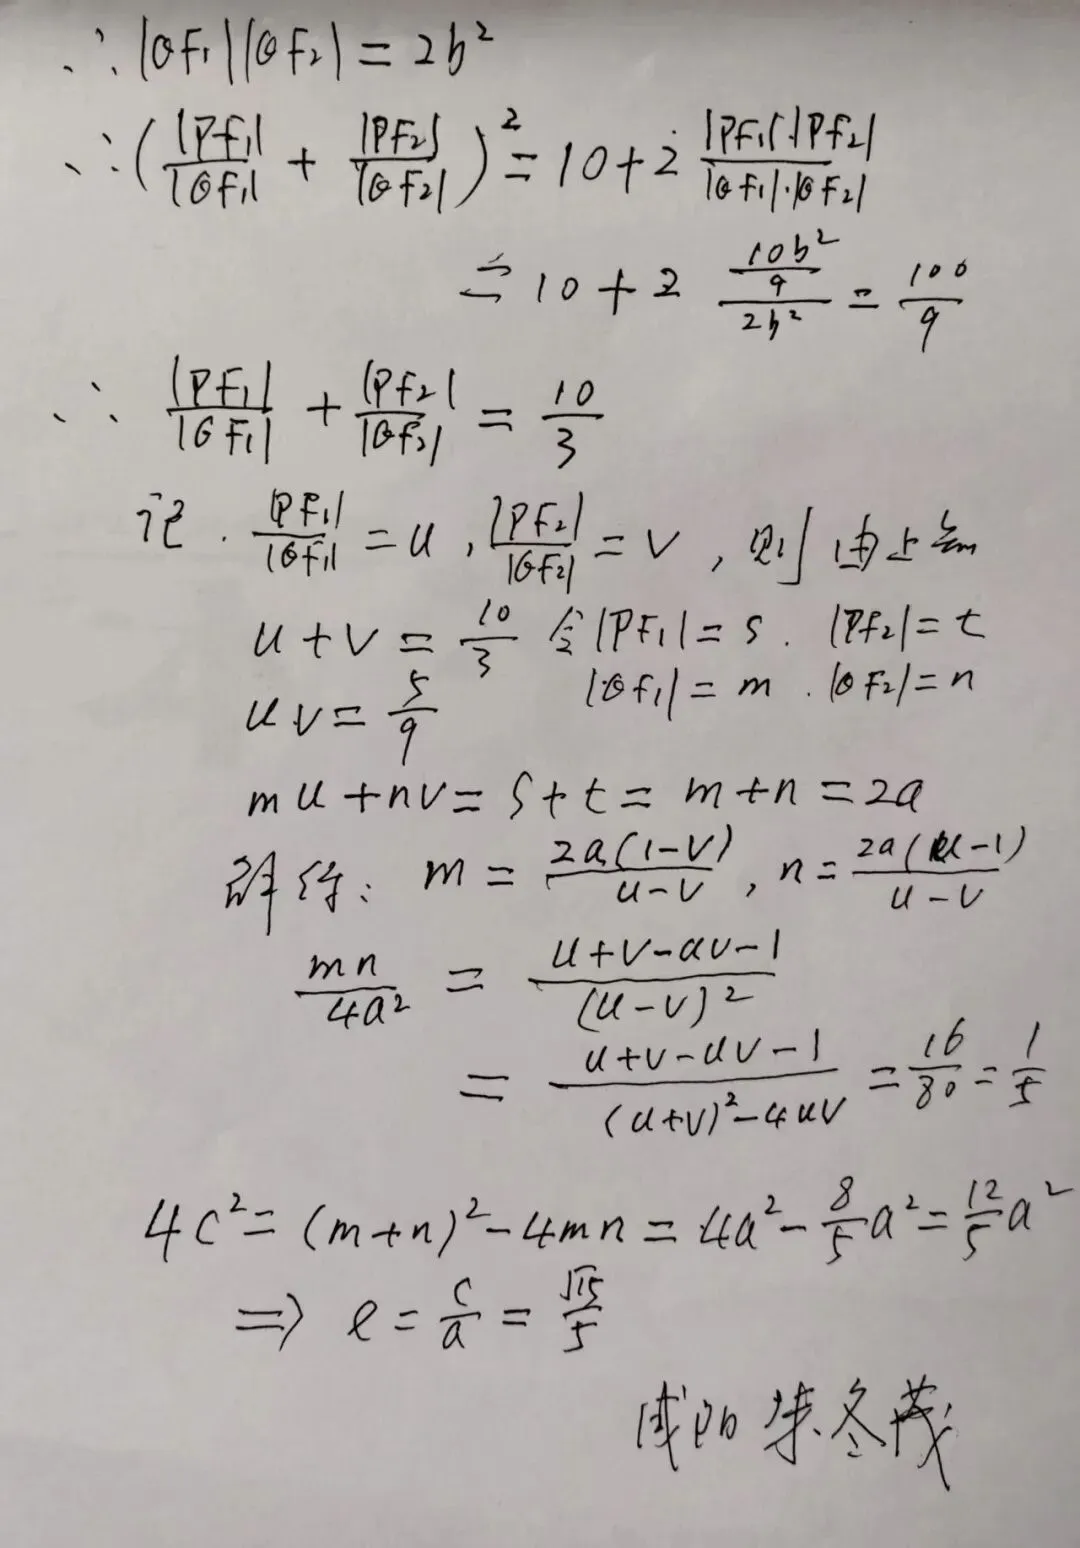 ∴|QF₁||QF₂|=2b²
∴(|PF₁|/|QF₁| + |PF₂|/|QF₂|)²=10+2 |PF₁|·|PF₂|/|QF₁|·|QF₂|
=10+2 (10b²/9)/(2b²) = 100/9
∴ |PF₁|/|QF₁| + |PF₂|/|QF₂| = 10/3
记. |PF₁|/|QF₁| = u, |PF₂|/|QF₂| = v, 则由上知
u+v=10/3 令|PF₁|=s. |PF₂|=t
uv=5/9 |QF₁|=m. |QF₂|=n
mu+nv=s+t=m+n=2a
解得: m=2a(1-v)/(u-v), n=2a(u-1)/(u-v)
mn/4a² = (u+v-uv-1)/(u-v)²
= (u+v-uv-1)/((u+v)²-4uv) = 16/80 = 1/5
4c²=(m+n)²-4mn=4a²-8/5a²=12/5a²
⇒ e=c/a=√15/5
咸阳 朱冬茂